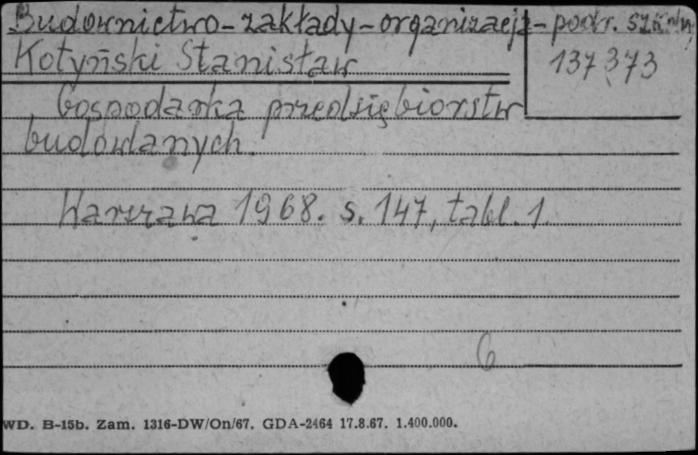 Budownictwo - zakłady - organizacja - podr. szkolny
Kotyński Stanisław
137373
Gospodarka przedsiębiorstw
budowlanych.
Warszawa 1968. s. 147, tabl. 1.
6
WD. B-15b. Zam. 1316-DW/On/67. GDA-2464 17.8.67. 1.400.000.